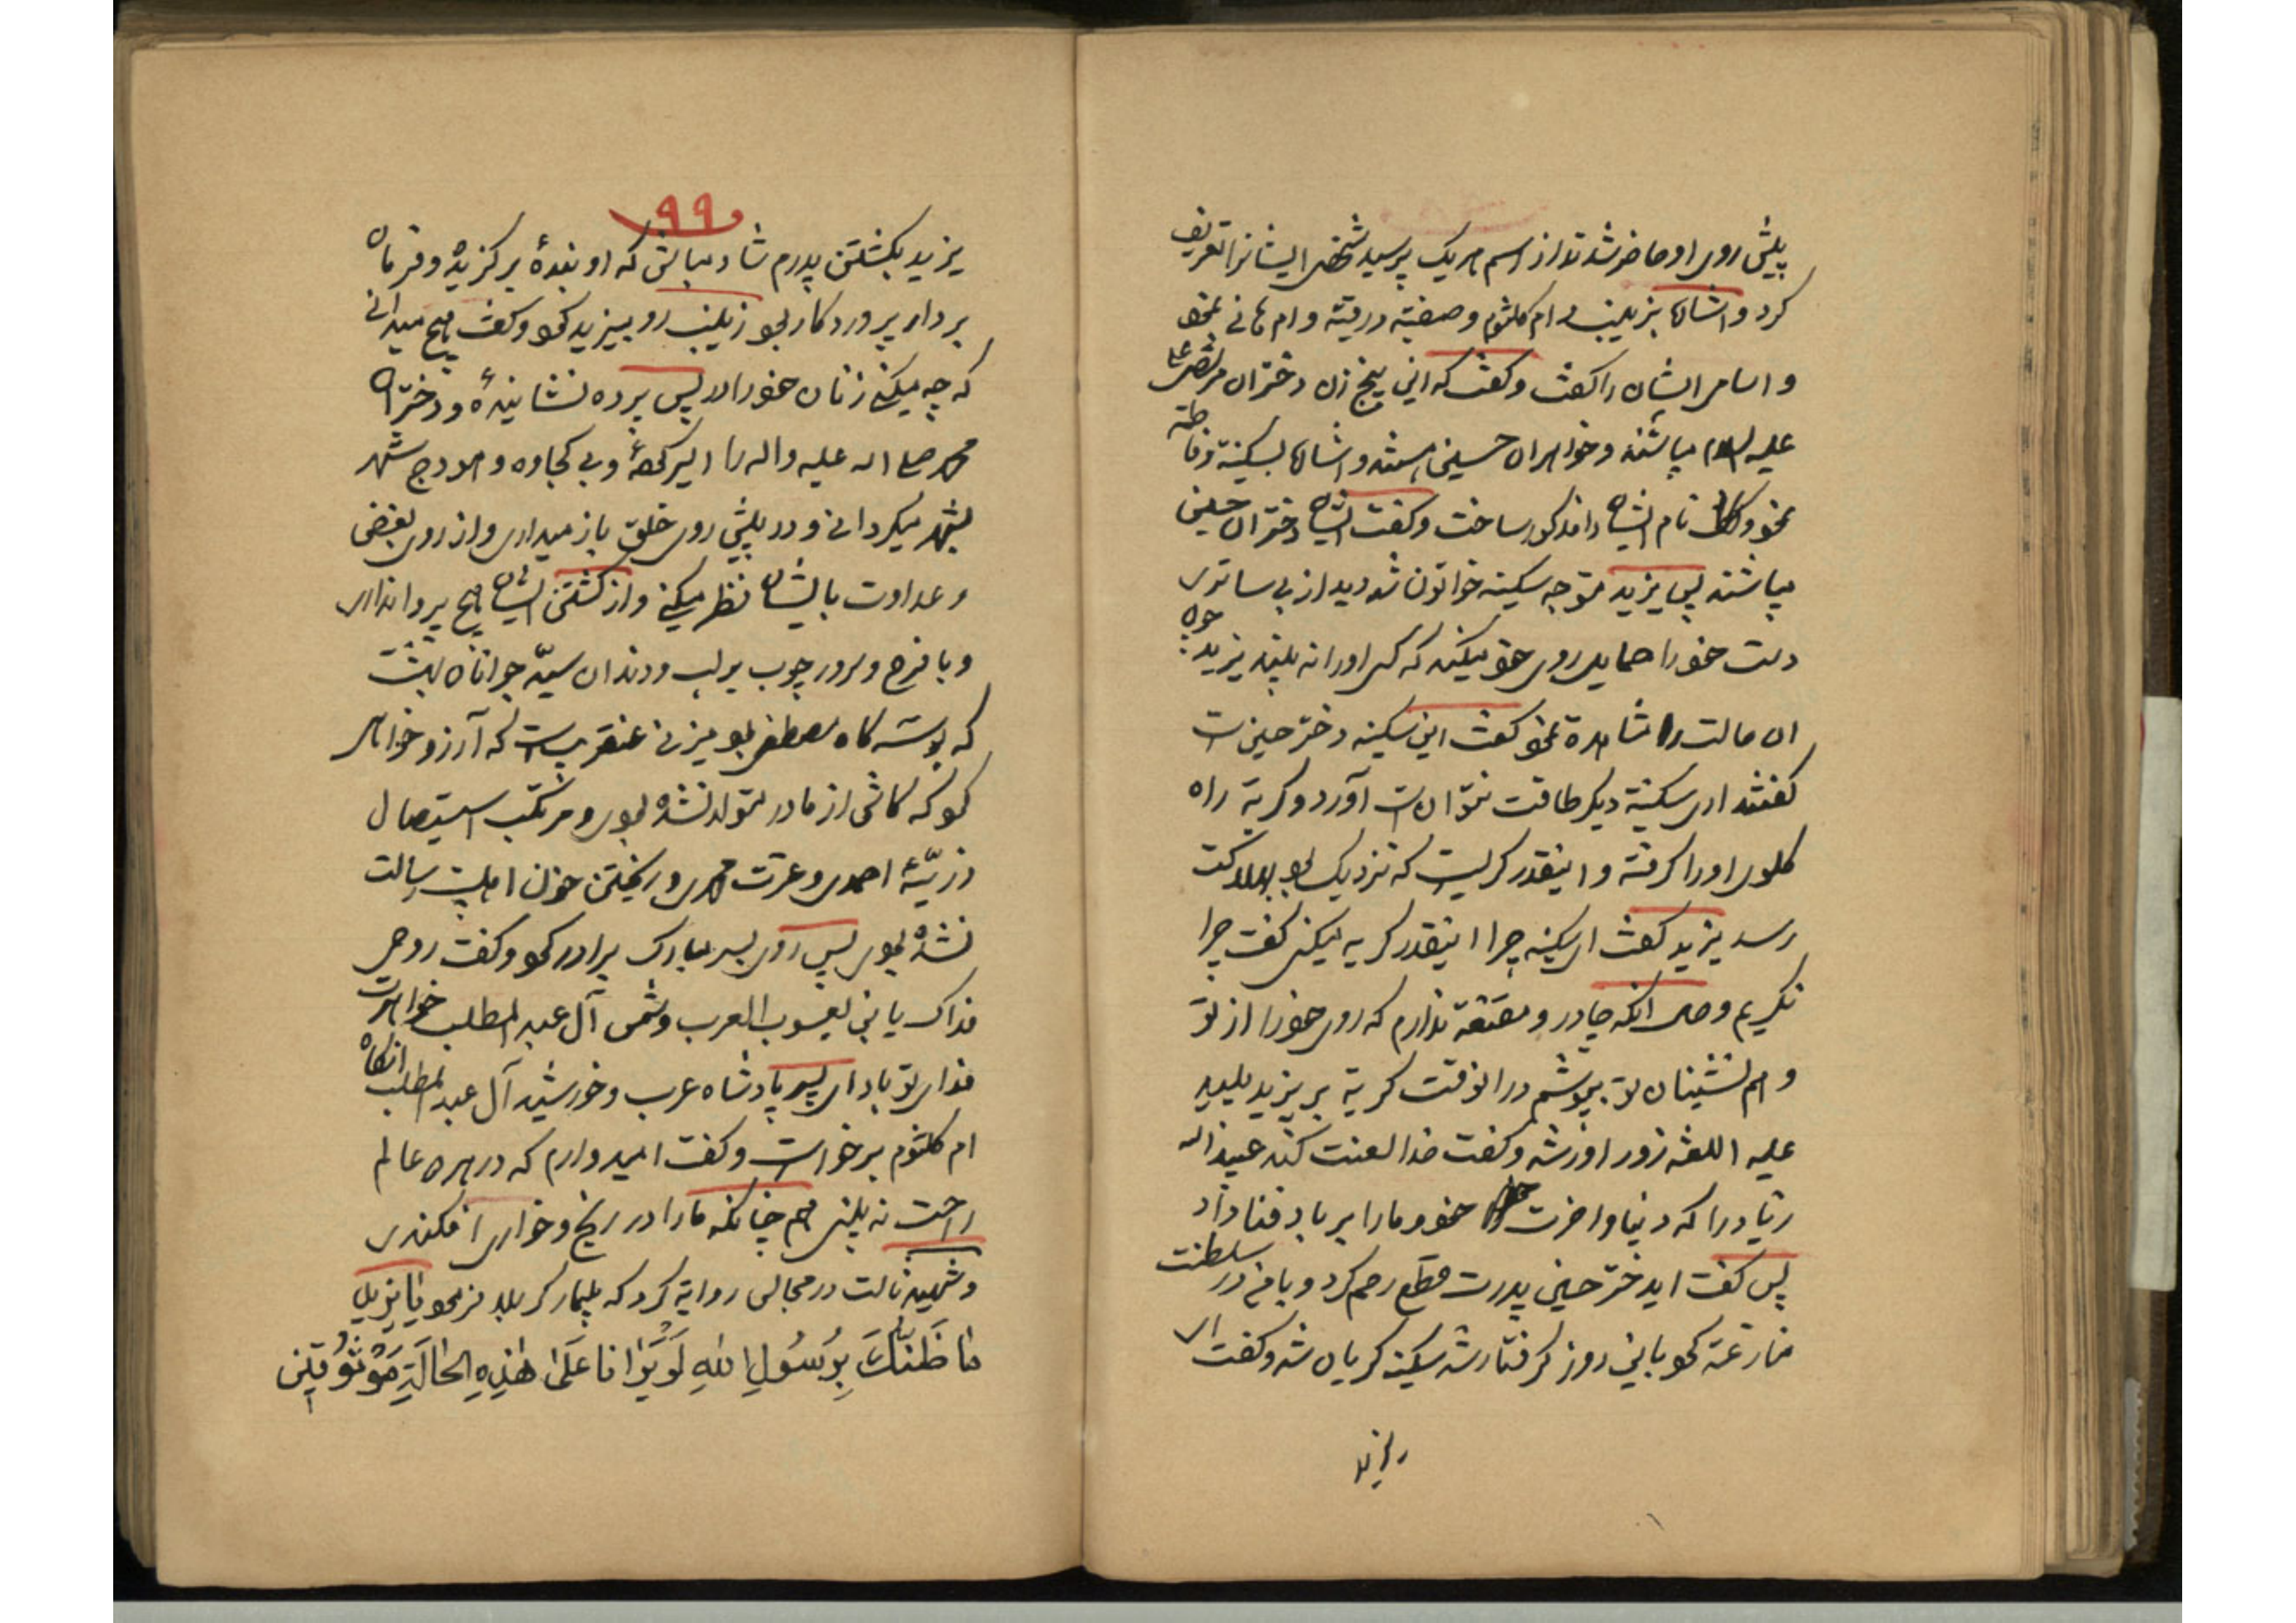 پیش روی او حاضر شدند از اسم هریک پرسید شخصی ایشانرا تعریف
کرد و اشاره بزینب و ام کلثوم و صفیه و رقیه و ام هانی نمود
و اسامی ایشان را کفت و کفت که این پنج زن دختران مرتضی علی
علیه السلام میباشند و خواهران حسین هستند و اشاره بسکینه و فاطمه
نمود و نام ایشان را مذکور ساخت و کفت ایشان دختران حسین
میباشند پس یزید متوجه سکینه خواتون شد دید از بی ساتری
دست خود را حمایل روی خود میکند که کسی او را نه بیند یزید چون
ان حالت را مشاهده نمود کفت این کیست کفتند این سکینه دختر حسین است
کفتند ای سکینه دیکر طاقت نتوانست آورد و کریه راه
کلوی او را کرفته و اینقدر کریست که نزدیک بود بهلاکت
رسد یزید کفت ای سکینه چرا اینقدر کریه میکنی کفت چرا
نکریم و حال آنکه چادر و مقنعه ندارم که روی خود را از تو
و هم نشینان تو بپوشم درانوقت کریه بر یزید پلید
علیه اللعنه زور اور شد و کفت خدا لعنت کند عبید اله
زیاد را که دنیا و اخرت خود و مارا بر باد فنا داد
پس کفت ایدختر حسین پدرت قطع رحم کرد و با من در سلطنت
منازعه نمود باین روز کرفتار شد سکینه کریان شد و کفت ای
۹۹
یزید بکشتن پدرم شاد مباش که او بندهٔ برکزیده و فرمان
بردار پروردکار بود زینب رو بیزید نمود و کفت هیچ میدانی
که چه میکنی زنان خود را در پس پرده نشانیدهٔ و دختران
محمد صلی اله علیه واله را اسیر کردهٔ و بی کجاوه و هودج شهر
بشهر میکردانی و در پیش روی خلق باز میداری و از روی بغض
و عداوت بایشان نظر میکنی و از کشتن ایشان هیچ پروا نداری
و با فرح و سرور چوب بر لب و دندان سید جوانان بهشت
که بوسه کاه مصطفی بود میزنی عنقریب است که آرزو خواهی
کرد که کاش از مادر متولد نشده بودی و مرتکب استیصال
ذریّهٔ احمدی و عترت محمدی و ریختن خون اهلبیت رسالت
نشده بودی پس روی بسر مبارک برادر نمود و کفت روحی
فداک یا بنی یعسوب العرب و شمس آل عبد المطلب خواهرت
فدای تو باد ای پسر پادشاه عرب و خورشید آل عبد المطلب انکاه
ام کلثوم برخواست و کفت امیدوارم که در هر دو عالم
راحت نه بینی هم چنانکه مارا در رنج و خواری افکندی
و شهید ثالث در مجالس روایة کرد که بیمار کربلا فرمود یا یزید
ما ظَنُّکَ بِرَسُولِ اللهِ لَو یَرٰانا عَلیٰ هٰذِهِ الحٰالَةِ مَوْثُوقینَ